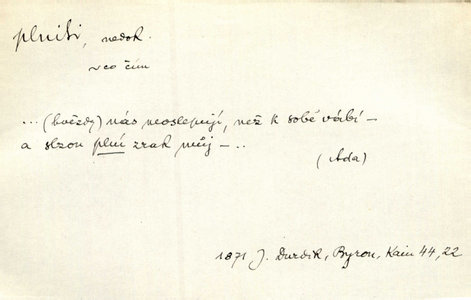 plniti, nedok.
co čím
... (hvězdy) nás neoslepují, než k sobě vábí –
a slzou plní zrak můj – ..
(Ada)
1871 J. Durdík, Byron, Kain 44, 22